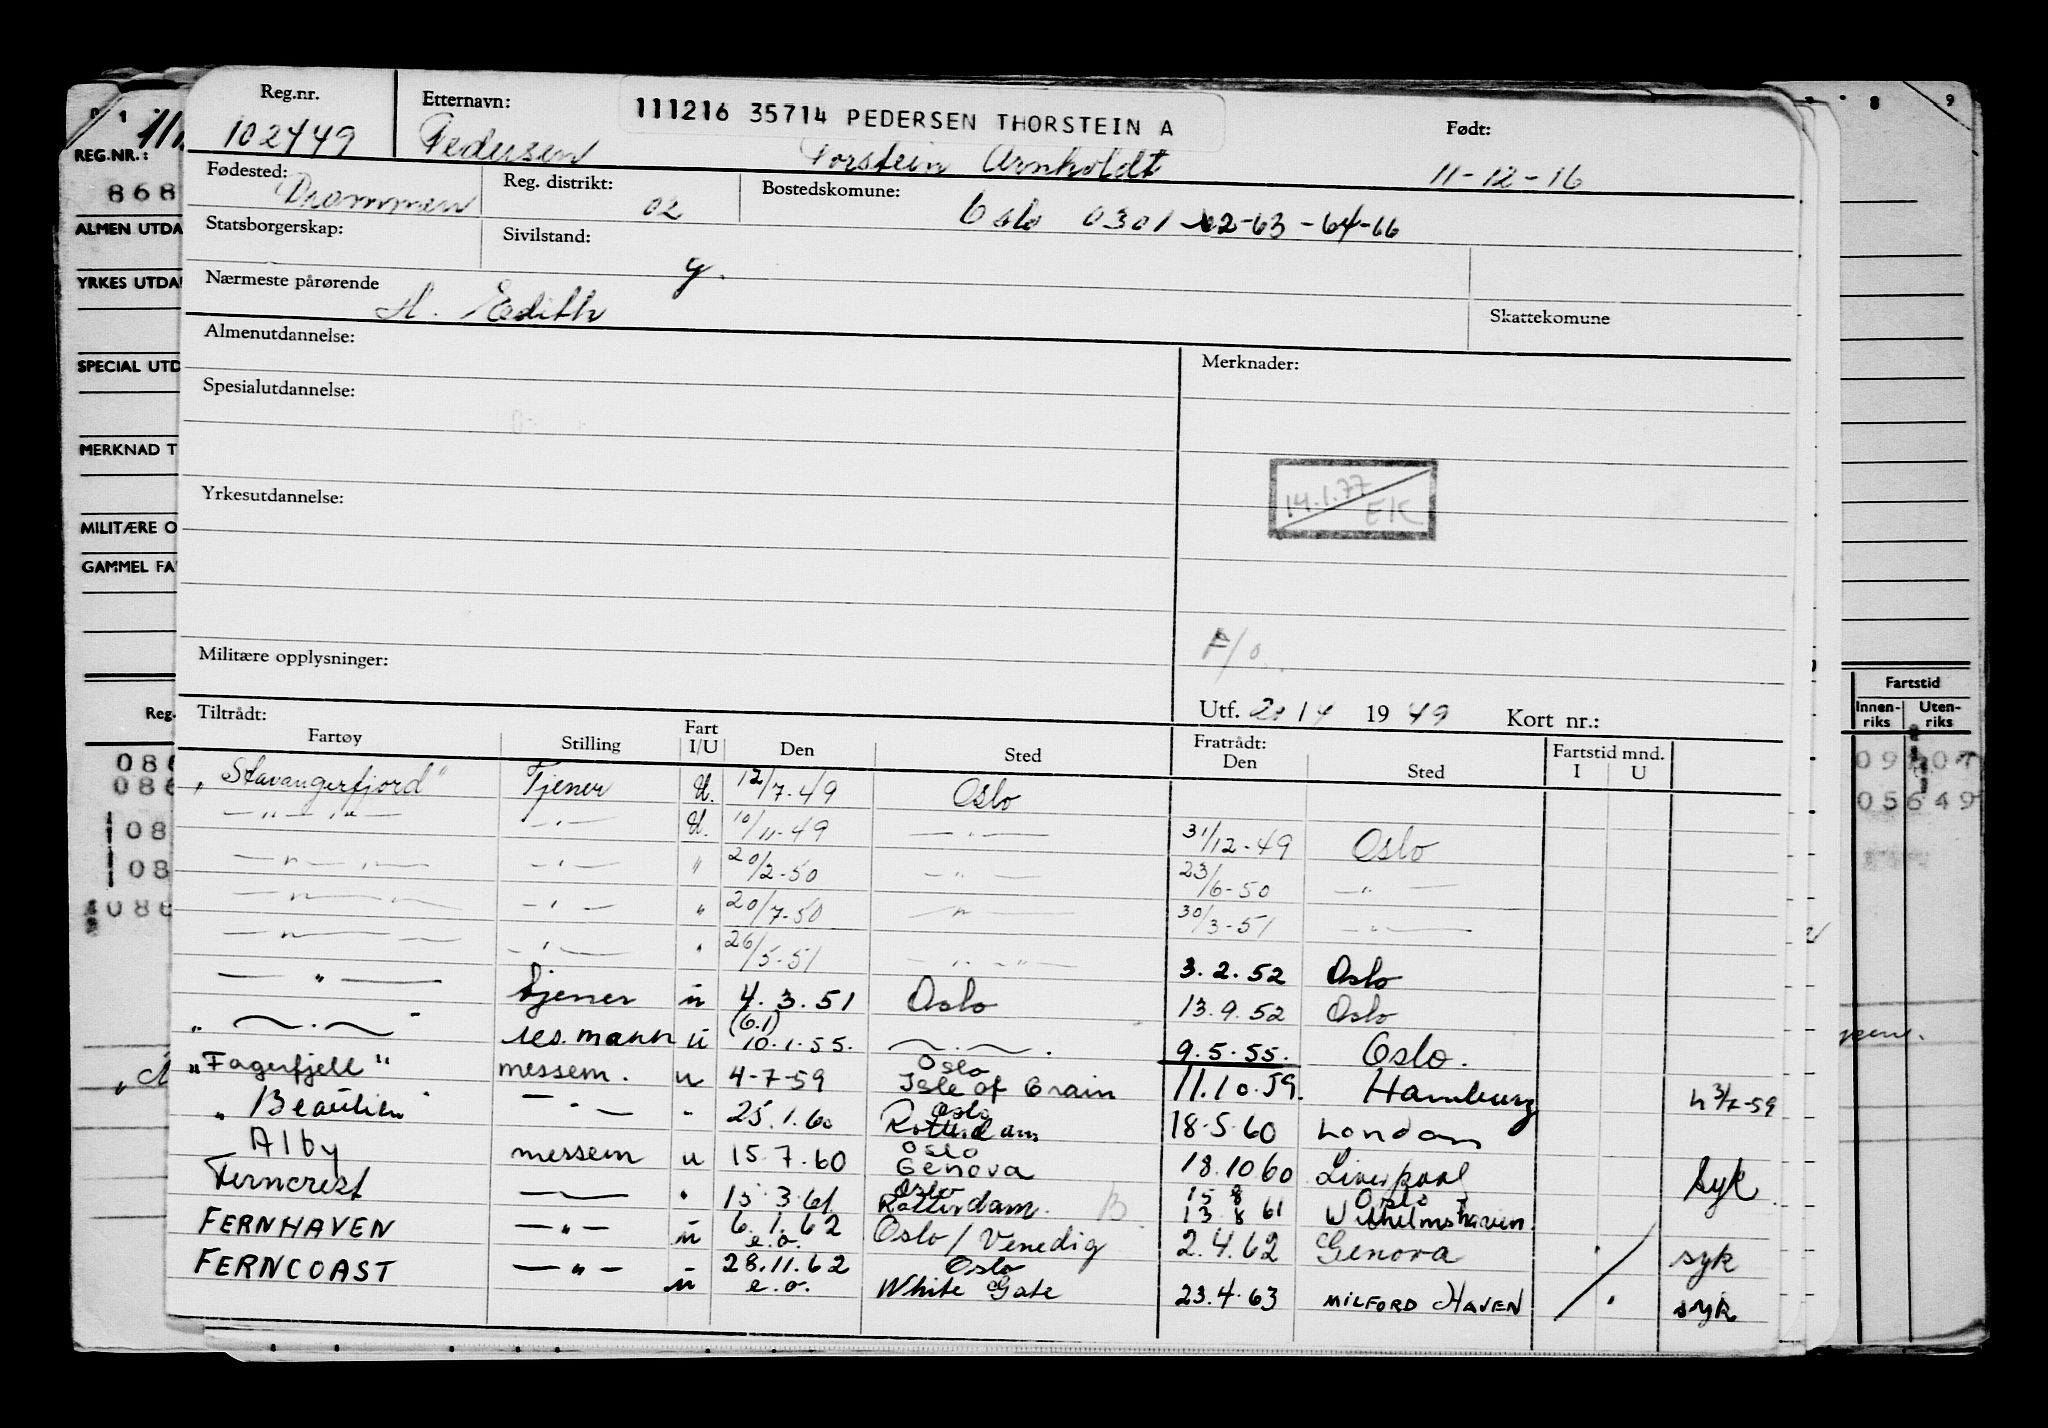 Reg.nr. 102449
Etternavn: Pedersen Torstein Arnholdt
111216 35714 PEDERSEN THORSTEIN A
Født: 11-12-16
Fødested: Drammen
Reg. distrikt: 02
Bostedskomune: Oslo 0301 -62-63-64-66
Statsborgerskap:
Sivilstand: g.
Nærmeste pårørende H. Edith
Skattekomune
Almenutdannelse:
Merknader:
Spesialutdannelse:
14.1.77 EK
Yrkesutdannelse:
F/o
Militære opplysninger:
Utf. 1949 Kort nr.:
Tiltrådt: Fratrådt: Fartstid mnd.
Fartøy Stilling Fart I/U Den Sted Den Sted I U
"Stavangerfjord" Tjener U. 12/7-49 Oslo
— " — " — — " — U. 10/11-49 — " — 31/12-49 Oslo
— " — " — — " — " 20/2-50 — " — 23/6-50 — " —
— " — " — — " — " 20/7-50 — " — 30/3-51 — " —
— " — — — " — " 26/5-51 — " — " — 3.2.52 Oslo
— " — tjener u 4.3.51 Oslo 13.9.52 Oslo
" — . — " res. mann u (6.1) 10.1.55. — . — . 9.5.55. Oslo.
"Fagerfjell" messem. u 4-7-59 Oslo Isle of Grain 11.10.59. Hamburg h 3/7-59
" — " — " 25.1.60 Oslo Rotterdam 18-5-60 London
Alby messem u 15.7.60 Oslo Genova 18.10 60 Liverpool syk
Ferncrest — " 15.3.61 Oslo Rotterdam. B 15 8 13.8 61 Oslo Wilhelmshaven.
FERNHAVEN — " — u 6.1.62 e.o. Oslo / Venedig 2.4.62 Genova syk
FERNCOAST — " — u 28.11.62 e.o. Oslo White Gate 23.4.63 MILFORD HAVEN syk
REG.NR.:
868
ALMEN UTDA
YRKES UTDA
SPECIAL UTD
MERKNAD T
MILITÆRE O
GAMMEL FA
Reg.
086
086
08
08
086
8 9
Fartstid
Innen-riks Uten-riks
05649